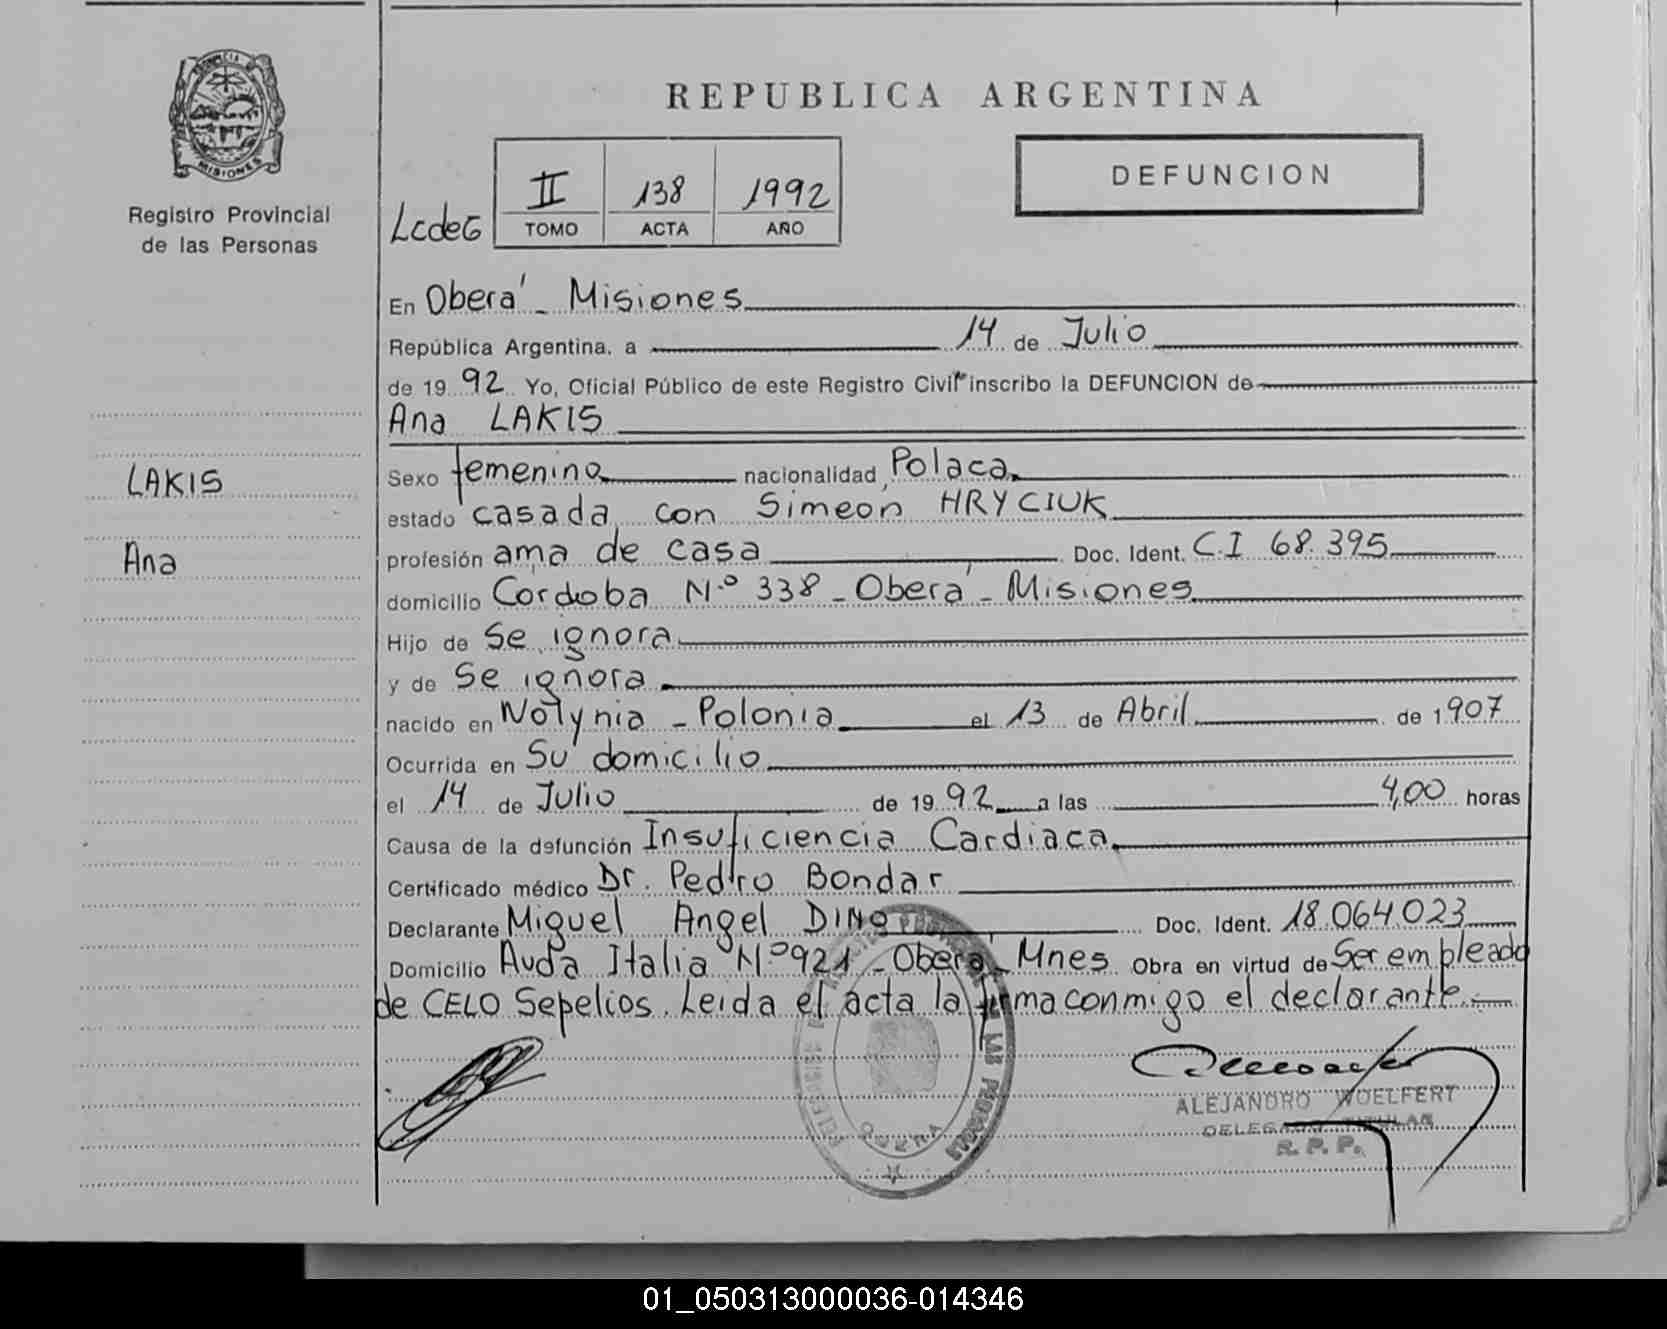 REPUBLICA ARGENTINA
PROVINCIA DE
MISIONES
Registro Provincial
de las Personas
LcdeG
II 138 1992
TOMO ACTA AÑO
DEFUNCION
En Oberá - Misiones
República Argentina, a 14 de Julio
de 1992 Yo, Oficial Público de este Registro Civil inscribo la DEFUNCION de
Ana LAKIS
LAKIS
Ana
Sexo femenino nacionalidad Polaca
estado casada con Simeón HRYCIUK
profesión ama de casa Doc. Ident. C.I 68.395
domicilio Cordoba N.º 338 - Oberá - Misiones
Hijo de Se ignora
y de Se ignora
nacido en Nolynia - Polonia el 13 de Abril de 1907
Ocurrida en Su domicilio
el 14 de Julio de 1992 a las 4,00 horas
Causa de la defunción Insuficiencia Cardiaca
Certificado médico Dr. Pedro Bondar
Declarante Miguel Angel DINO Doc. Ident. 18.064.023
Domicilio Avda Italia Nº 921 - Oberá - Mnes Obra en virtud de Ser empleado
de CELO Sepelios. Leida el acta la firma conmigo el declarante.
LAS PERSONAS
OBERA
ALEJANDRO WOELFERT
DELEGADO TITULAR
R. P. P.
01_050313000036-014346